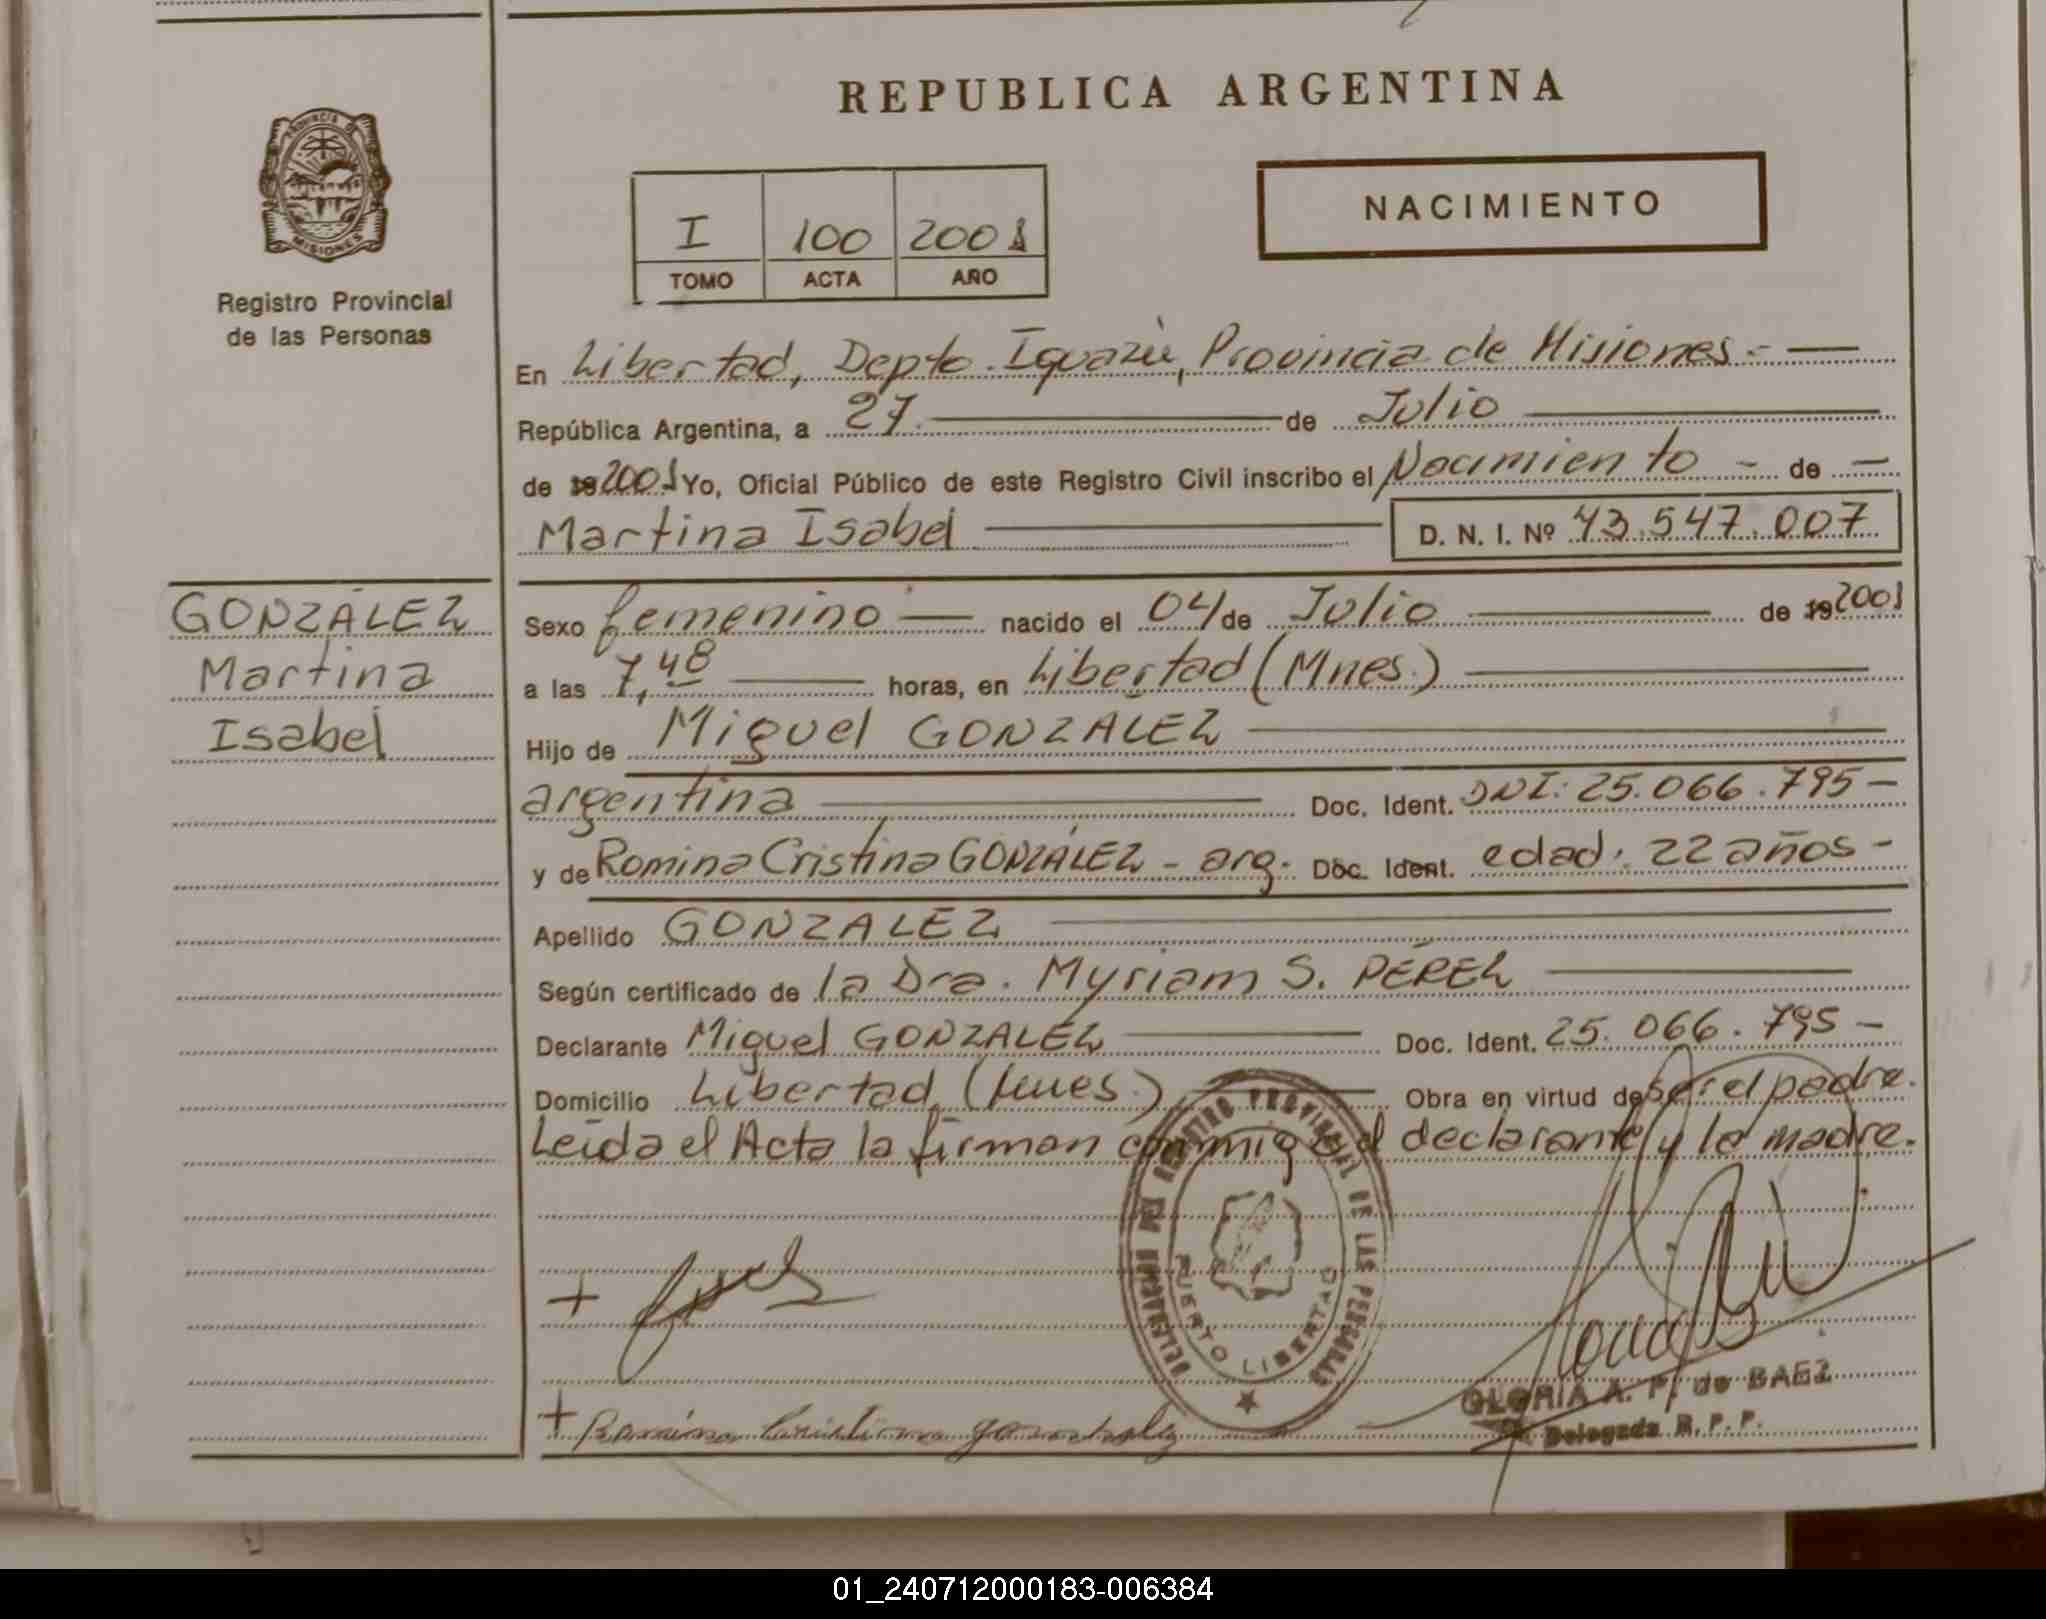 REPUBLICA ARGENTINA
PROVINCIA DE
MISIONES
Registro Provincial
de las Personas
NACIMIENTO
I 100 2001
TOMO ACTA AÑO
En Libertad, Depto. Iguazú, Provincia de Misiones.-
República Argentina, a 27 de Julio
de 19 2001 Yo, Oficial Público de este Registro Civil inscribo el Nacimiento - de -
Martina Isabel D. N. I. Nº 43.547.007
GONZÁLEZ
Martina
Isabel
Sexo femenino nacido el 04 de Julio de 19 2001
a las 7,48 horas, en Libertad (Mnes.)
Hijo de Miguel GONZALEZ
argentina Doc. Ident. DNI: 25.066.795-
y de Romina Cristina GONZÁLEZ - arg. Doc. Ident. edad: 22 años -
Apellido GONZALEZ
Según certificado de la Dra. Myriam S. PÉREZ
Declarante Miguel GONZALEZ Doc. Ident. 25.066.795-
Domicilio Libertad (Mnes.) Obra en virtud de ser el padre.
Leída el Acta la firman conmigo el declarante y la madre.
DELEGACION DEL REGISTRO PROVINCIAL DE LAS PERSONAS
PUERTO LIBERTAD
+
+ Romina Cristina gonzalez
GLORIA A. P. de BAEZ
Delegada R. P. P.
01_240712000183-006384